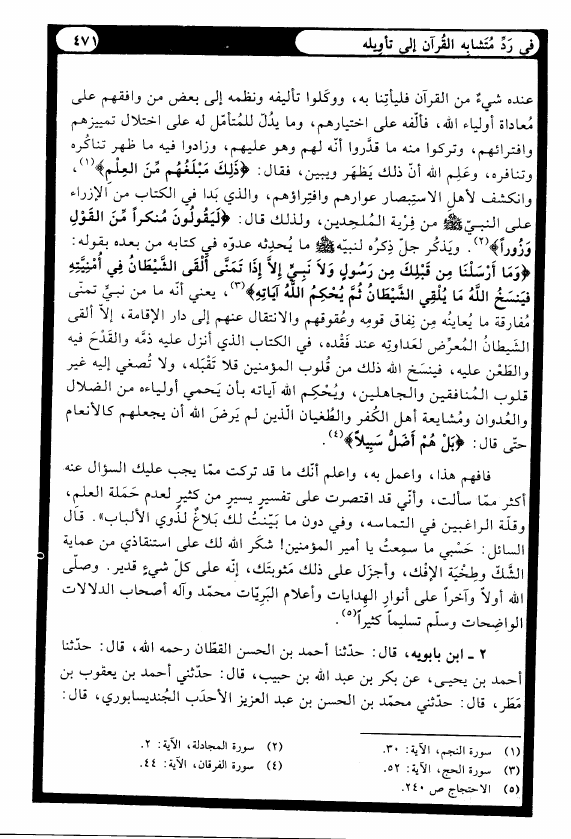 في رَدِّ مُتَشابِه القُرآن إلى تأويله
٤٧١
عنده شيءٌ من القرآن فليأتِنا به، ووكَلوا تأليفه ونظمه إلى بعض من وافقهم على
مُعاداة أولياء الله، فألّفه على اختيارهم، وما يدُلّ للمُتأمّل له على اختلال تمييزهم
وافترائهم، وتركوا منه ما قدَّروا أنّه لهم وهو عليهم، وزادوا فيه ما ظهر تناكُره
وتنافره، وعَلِم الله أنّ ذلك يَظهَر ويبين، فقال: ﴿ذَلِكَ مَبْلَغُهُم مِّنَ العِلْمِ﴾(١)،
وانكشف لأهل الاستبصار عوارهم وافتراؤهم، والذي بَدا في الكتاب من الإزراء
على النبيّ ﷺ من فِرْية المُلحِدين، ولذلك قال: ﴿لَيَقُولُونَ مُنكراً مِّنَ القَوْلِ
وَزُوراً﴾(٢). ويَذكُر جلّ ذِكرُه لنبيّه ﷺ ما يُحدِثه عدوّه في كتابه من بعده بقوله:
﴿وَمَا أَرْسَلْنَا مِن قَبْلِكَ مِن رَسُولٍ وَلاَ نَبِيٍّ إِلاَّ إِذَا تَمَنَّى أَلْقَى الشَّيْطَانُ فِي أُمْنِيَّتِهِ
فَيَنسَخُ اللَّهُ مَا يُلْقِي الشَّيْطَانُ ثُمَّ يُحْكِمُ اللَّهُ آيَاتِهِ﴾(٣)، يعني أنّه ما من نبيٍّ تمنّى
مُفارقة ما يُعاينُه مِن نِفاق قومِه وعُقوقهم والانتقال عنهم إلى دار الإقامة، إلاّ ألقى
الشَّيطانُ المُعرِّض لعَداوتِه عند فَقْده، في الكتاب الذي أنزل عليه ذمَّه والقَدْحَ فيه
والطَعْن عليه، فينسَخ الله ذلك من قُلوب المؤمنين فلا تَقْبَله، ولا تُصغي إليه غير
قلوب المُنافقين والجاهلين، ويُحْكِم الله آياته بأن يَحمي أولياءه من الضلال
والعُدوان ومُشايعة أهل الكُفر والطُغيان الّذين لم يَرضَ الله أن يجعلهم كالأنعام
حتّى قال: ﴿بَلْ هُمْ أَضَلُّ سَبِيلاً﴾(٤).
فافهم هذا، واعمل به، واعلم أنّك ما قد تركت ممّا يجب عليك السؤال عنه
أكثر ممّا سألت، وأنّي قد اقتصرت على تفسيرٍ يسيرٍ من كثيرٍ لعدم حَمَلة العلم،
وقلّة الراغبين في التماسه، وفي دون ما بَيّنتُ لك بَلاغٌ لذَوي الألباب». قال
السائل: حَسْبي ما سمِعتُ يا أمير المؤمنين! شكَر الله لك على استنقاذي من عماية
الشَّكّ وطِخْيَة الإفْك، وأجزَل على ذلك مَثوبتَك، إنّه على كلّ شيءٍ قدير. وصلّى
الله أولاً وآخراً على أنوارِ الهِدايات وأعلام البَريّات محمّد وآله أصحاب الدلالات
الواضحات وسلّم تسليماً كثيراً(٥).
٢ ـ ابن بابويه، قال: حدّثنا أحمد بن الحسن القطّان رحمه الله، قال: حدّثنا
أحمد بن يحيى، عن بكر بن عبد الله بن حبيب، قال: حدّثني أحمد بن يعقوب بن
مَطَر، قال: حدّثني محمّد بن الحسن بن عبد العزيز الأحدَب الجُنديسابوري، قال:
(١) سورة النجم، الآية: ٣٠.
(٢) سورة المجادلة، الآية: ٢.
(٣) سورة الحج، الآية: ٥٢.
(٤) سورة الفرقان، الآية: ٤٤.
(٥) الاحتجاج ص ٢٤٠.